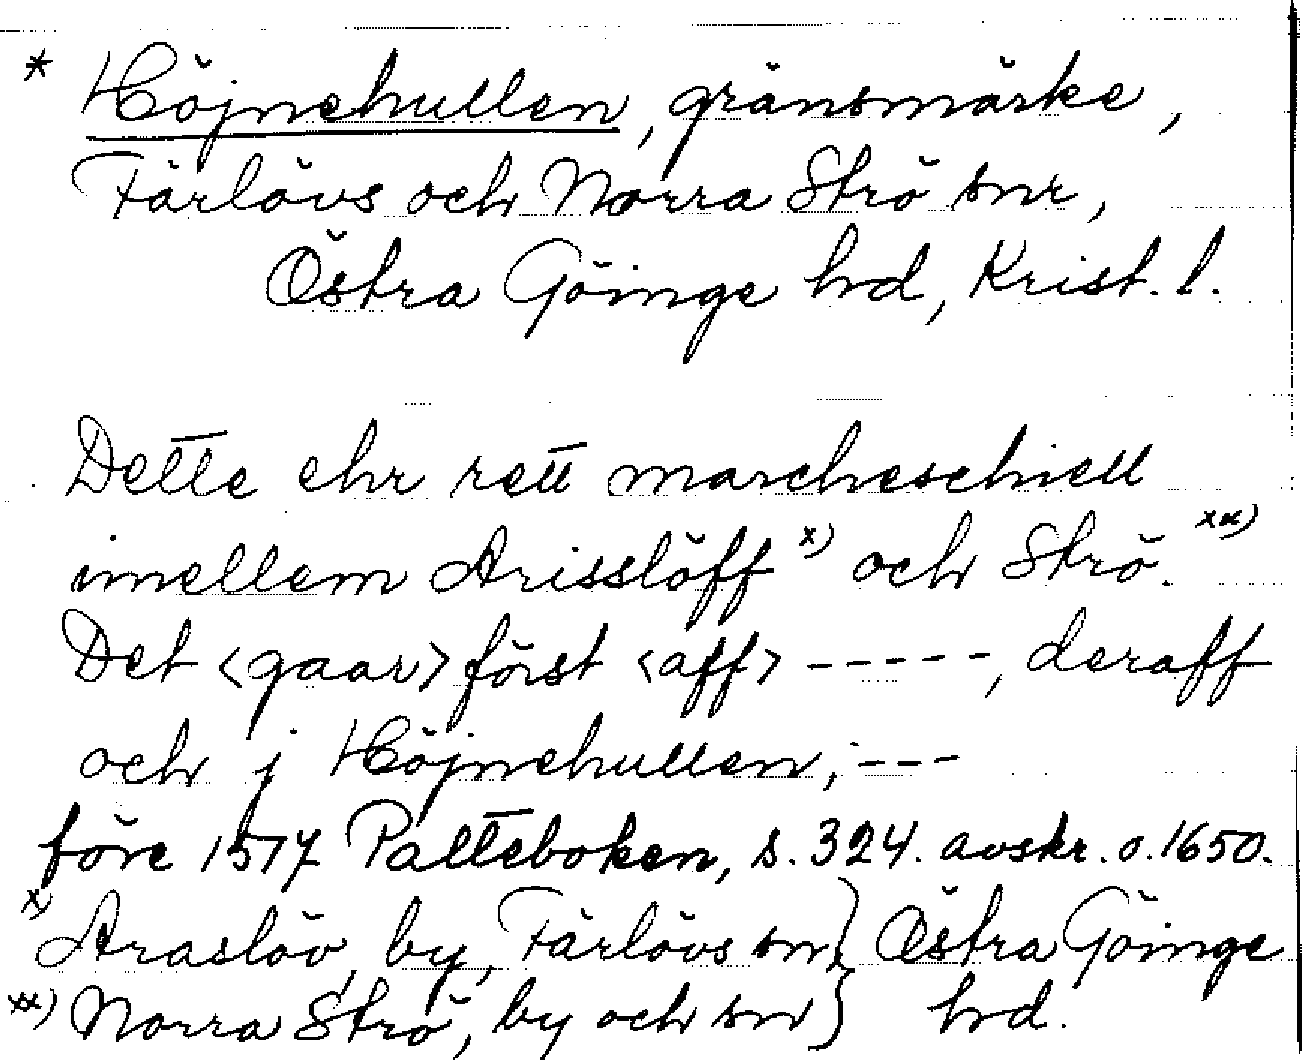 * Höjnehullen, gränsmärke,
Färlövs och Norra Strö snr,
Östra Göinge hd, Krist. l.
Dette ehr rett marcheschiell
imellem Arisslöff x) och Strö. xx)
Det <gaar> först <aff> -----, deraff
och j Höjnehullen, ---
före 1517 Palteboken, s. 324. avskr. o. 1650.
x) Araslöv, by, Färlövs sn } Östra Göinge
xx) Norra Strö, by och sn } hd.